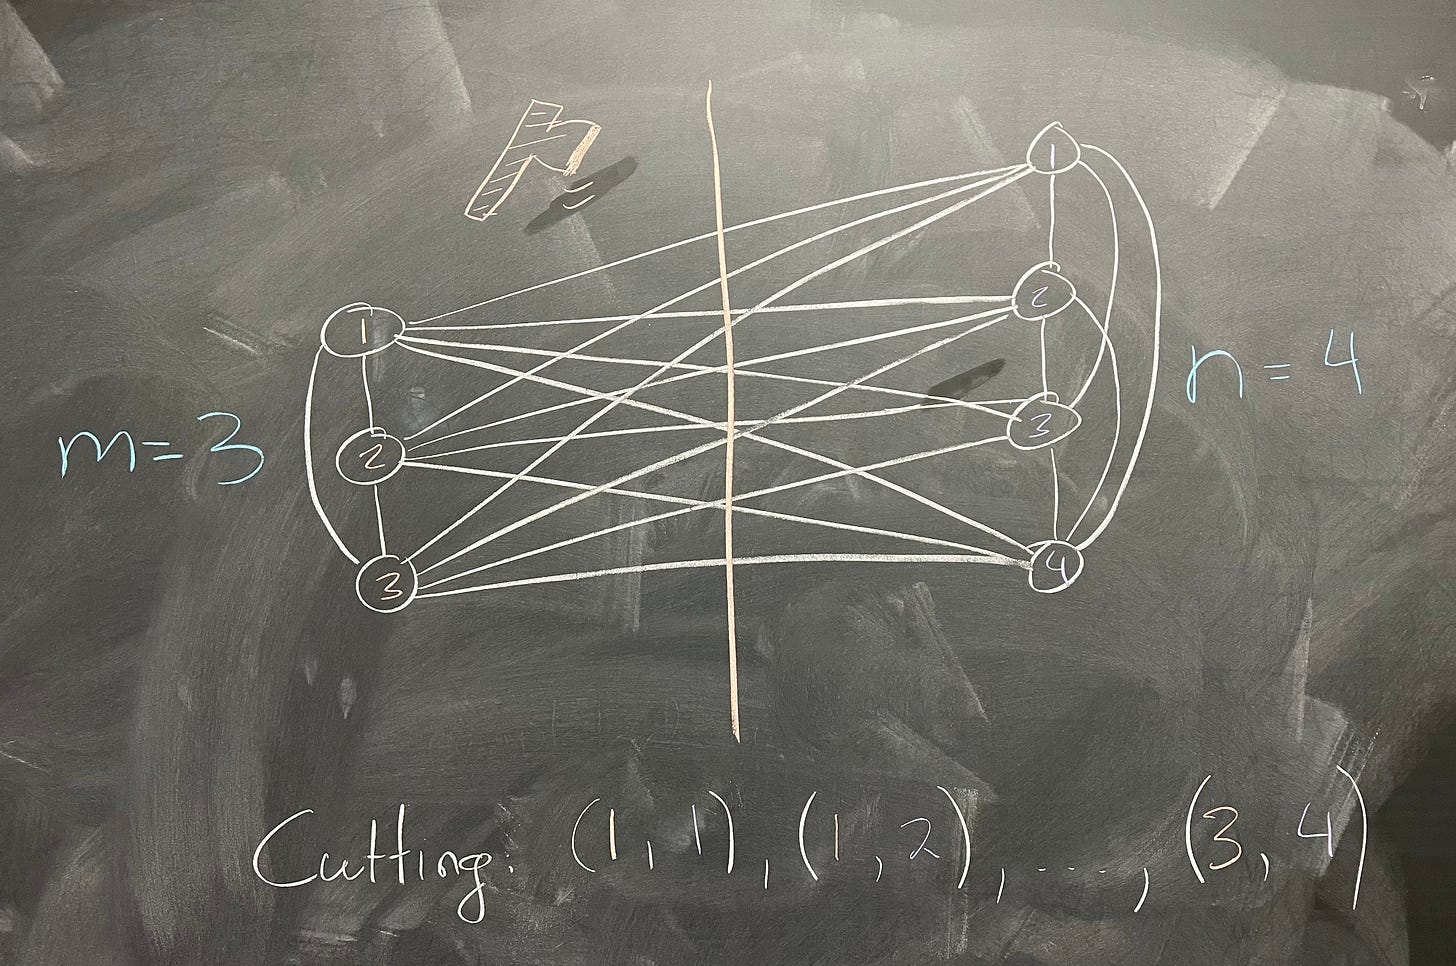 1
1
2
m=3
n=4
2
3
3
4
Cutting: (1,1), (1,2), ..., (3,4)